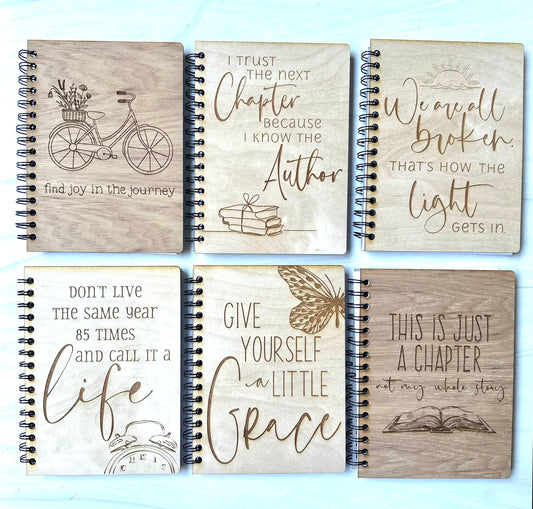 find joy in the journey
I TRUST
THE NEXT
Chapter
BECAUSE
I KNOW THE
Author
We are all
broken.
THAT'S HOW THE
light
GETS IN.
DON'T LIVE
THE SAME YEAR
85 TIMES
AND CALL IT A
life
GIVE
YOURSELF
a LITTLE
Grace
THIS IS JUST
A CHAPTER
not my whole story.